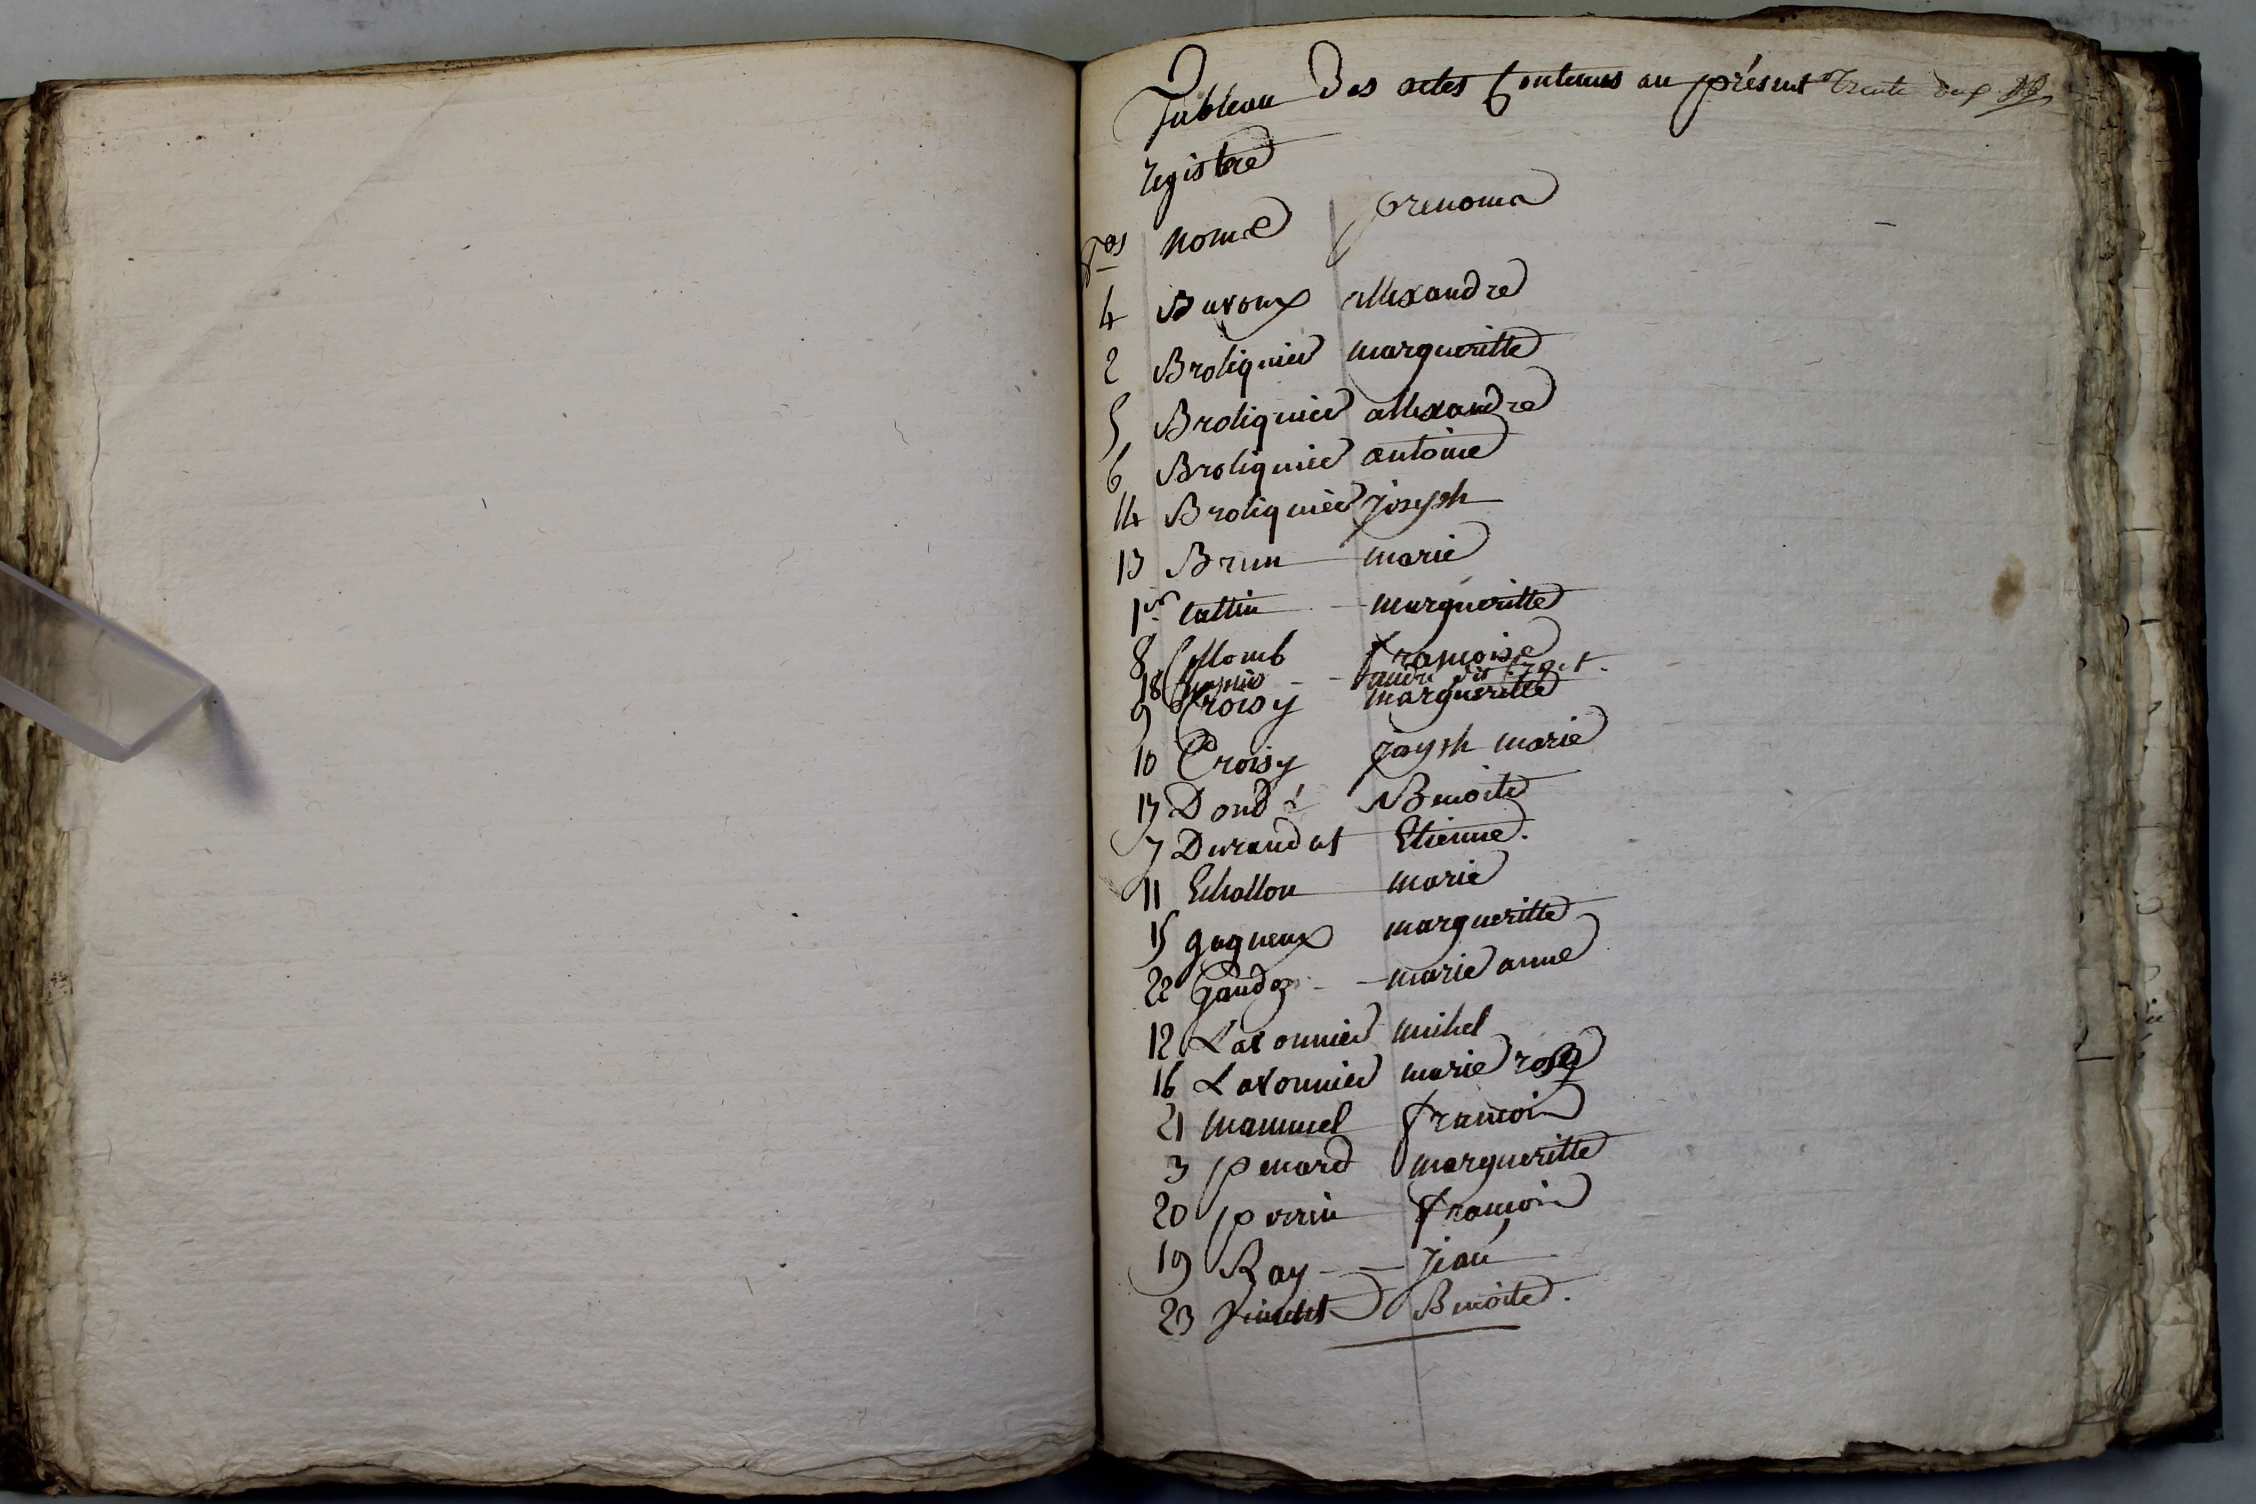 Tableau Des actes Contenus au présent Trente deux
registre
Nos noms prenoms
4 Buvoux allexandre
2 Broliquier margueritte
5 Broliquier allexandre
6 Broliquier antoine
14 Broliquier joseph
13 Brun marie
1er Cattin margueritte
8 Collomb francoise
18 andré dit
9 Croisy margueritte
10 Croisy joseph marie
17 Dond Benoite
7 Durandat Etienne.
11 Echallon marie
15 gagneux margueritte
22 Gandoz marie anne
12 Lavonnier michel
16 Lavonnier marie rose
21 mammuel francois
3 penard margueritte
20 perrin francois
19 Ray jean
23 Benoite.